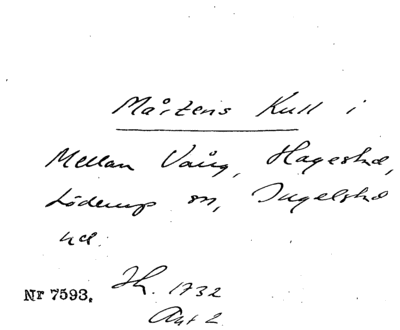 Mårtens Kull i
Mellan Vång, Hagestad,
Löderup sn, Ingelstad
hd.
Nr 7593. Jh. 1732
Akt 2